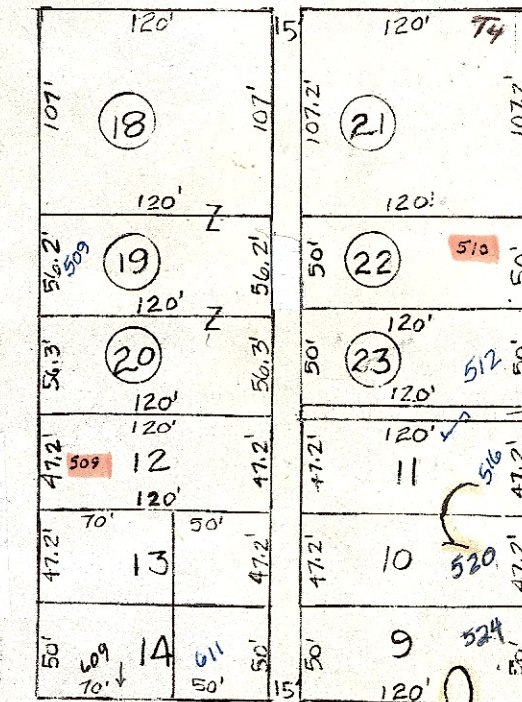 120' 15' 120' T4
107' 18 107' 107.2' 21 107.2'
120' Z 120'
56.2' 509 19 56.2' 50' 22 510 50'
120' Z 120'
56.3' 20 56.3' 50' 23 512 50'
120' 120'
120' 120'
47.2' 509 12 47.2' 47.2' 11 516 47.2'
120'
70' 50'
47.2' 13 47.2' 47.2' 10 520 47.2'
50' 609 14 611 50' 50' 9 524 50'
70' 50' 15' 120'